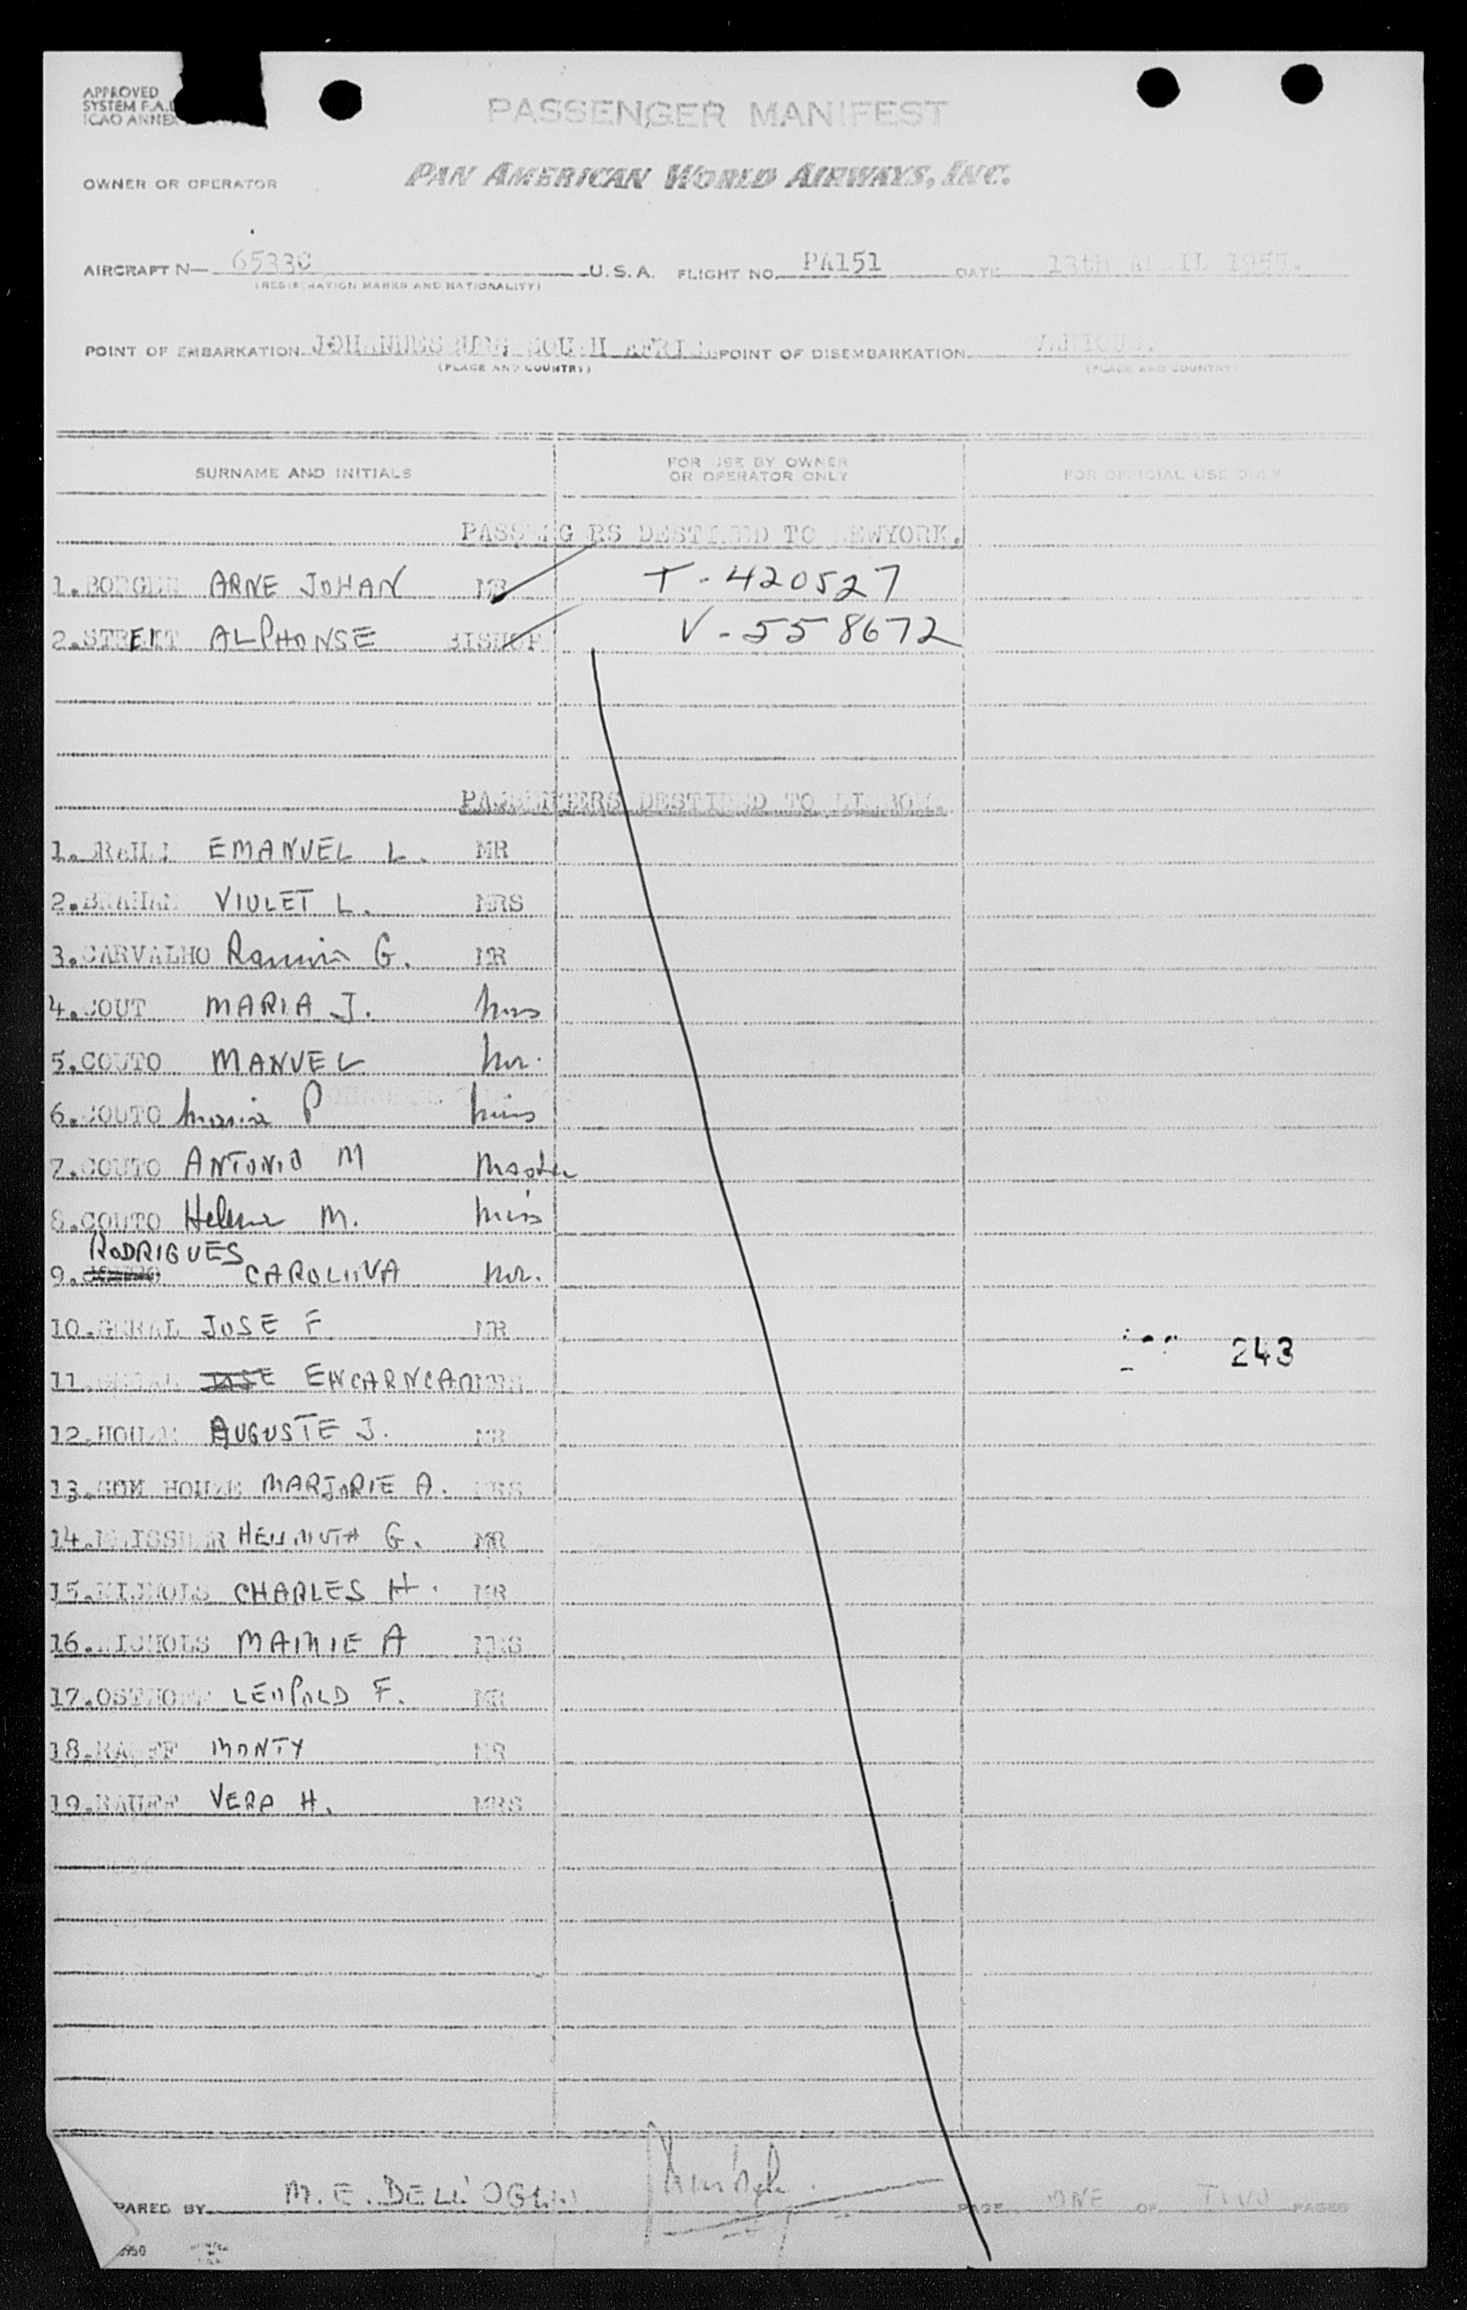 APPROVED
SYSTEM F.A.L
ICAO ANNEX
PASSENGER MANIFEST
OWNER OR OPERATOR PAN AMERICAN WORLD AIRWAYS, INC.
AIRCRAFT N— 6533C U.S.A. FLIGHT NO. PA151 DATE 13th APRIL 1955.
(REGISTRATION MARKS AND NATIONALITY)
POINT OF EMBARKATION JOHANNESBURG SOUTH AFRICA POINT OF DISEMBARKATION
(PLACE AND COUNTRY) (PLACE AND COUNTRY)
SURNAME AND INITIALS FOR USE BY OWNER OR OPERATOR ONLY FOR OFFICIAL USE ONLY
PASSENGERS DESTINED TO NEWYORK.
1. BORGER ARNE JOHAN MR T-420527
2. STREIT ALPHONSE BISHOP V-558672
PASSENGERS DESTINED TO LISBON.
1. EMANUEL L. MR
2. BRAHAM VIOLET L. MRS
3. CARVALHO G. MR
4. COUT MARIA J. Mrs
5. COUTO MANUEL Mr.
6. COUTO Maria P Miss
7. COUTO ANTONIO M Master
8. COUTO Helena M. Miss
RODRIGUES
9. CAROLINA Mr.
10. GERAL JOSE F MR
11. JOSE ENCARNCAO MRS
243
12. HOUZE AUGUSTE J. MR
13. HOUZE MARJORIE A. MRS
14. G. MR
15. NICHOLS CHARLES H. MR
16. NICHOLS MAMIE A MRS
17. OSTHOFF LEOPOLD F. MR
18. RAUFF MONTY MR
19. RAUFF VERA H. MRS
PARED BY M. E. DELL'OGLIO PAGE ONE OF TWO PAGES